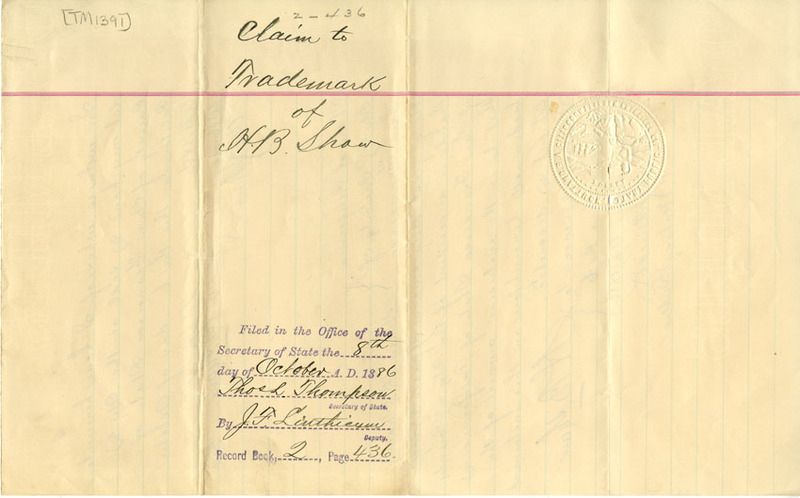 [TM1391]
2-436
Claim to
Trademark
of
H.B. Shaw
Filed in the Office of the
Secretary of State the 8th
day of October A. D. 1886
Thos L. Thompson
Secretary of State.
By J. F. Linthicum
Deputy.
Record Book, 2, Page 436